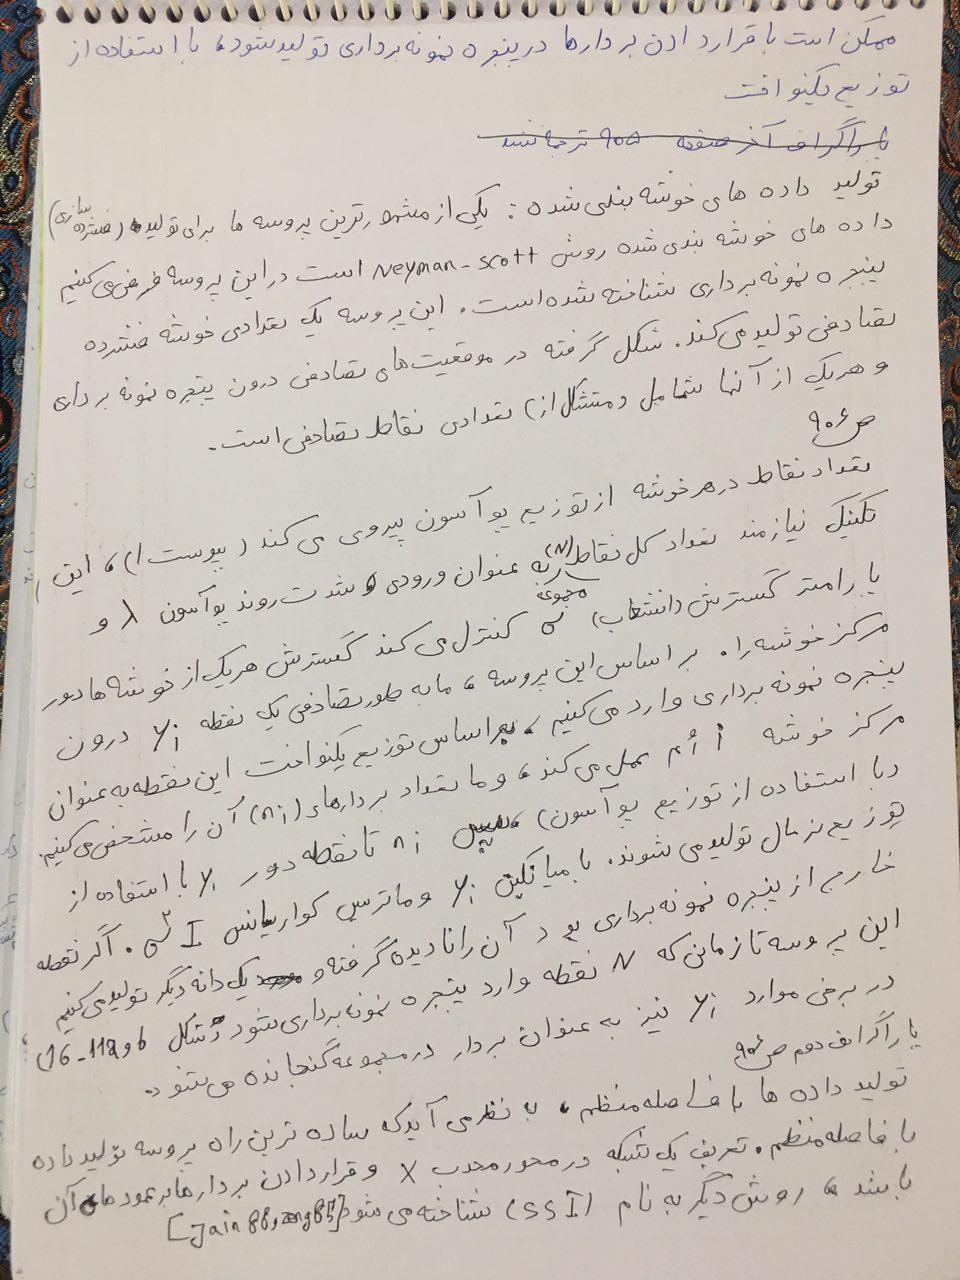 ممکن است با قرار دادن بردارها در پنجره نمونه برداری تولید شود، با استفاده از
توزیع یکنواخت
پاراگراف آخر صفحه ۹۰۵ ترجمه نشد
تولید داده های خوشه بندی شده: یکی از مشهورترین پروسه ها برای تولید (فشرده سازی)
داده های خوشه بندی شده روش Neyman-Scott است در این پروسه فرض می کنیم
پنجره نمونه برداری شناخته شده است. این پروسه یک تعدادی خوشه فشرده
تصادفی تولید می کند. شکل گرفته در موقعیت های تصادفی درون پنجره نمونه برداری
و هر یک از آنها شامل (متشکل از) تعدادی نقاط تصادفی است.
ص ۹۰۶
تعداد نقاط در هر خوشه از توزیع پوآسون پیروی می کند (پیوست ا)، این
تکنیک نیازمند تعداد کل نقاط (N) مجموعه به عنوان ورودی، شدت روند پوآسون λ و
پارامتر گسترش (انشعاب) σ کنترل می کند گسترش هر یک از خوشه ها دور
مرکز خوشه را. بر اساس این پروسه، ما به طور تصادفی یک نقطه yi درون
پنجره نمونه برداری وارد می کنیم، بر اساس توزیع یکنواخت این نقطه به عنوان
مرکز خوشه i اُم عمل می کند، و ما تعداد بردارهای (ni) آن را مشخص می کنیم
(با استفاده از توزیع پوآسون) سپس ni تا نقطه دور yi با استفاده از
توزیع نرمال تولید می شوند. با میانگین yi و ماتریس کواریانس σ² I. اگر نقطه
خارج از پنجره نمونه برداری بود آن را نادیده گرفته و یک دانه دیگر تولید می کنیم
این پروسه تا زمانی که N نقطه وارد پنجره نمونه برداری شود (شکل 16-11a و b)
در برخی موارد yi نیز به عنوان بردار در مجموعه گنجانده می شود.
پاراگراف دوم ص ۹۰۶
تولید داده ها با فاصله منظم، به نظر می آید که ساده ترین راه پروسه تولید داده
با فاصله منظم. تعریف یک شبکه در محور محدب X و قرار دادن بردارها بر عمودهای آن
باشد، روش دیگر به نام (SSI) شناخته می شود [Jain 88, zeng 85]